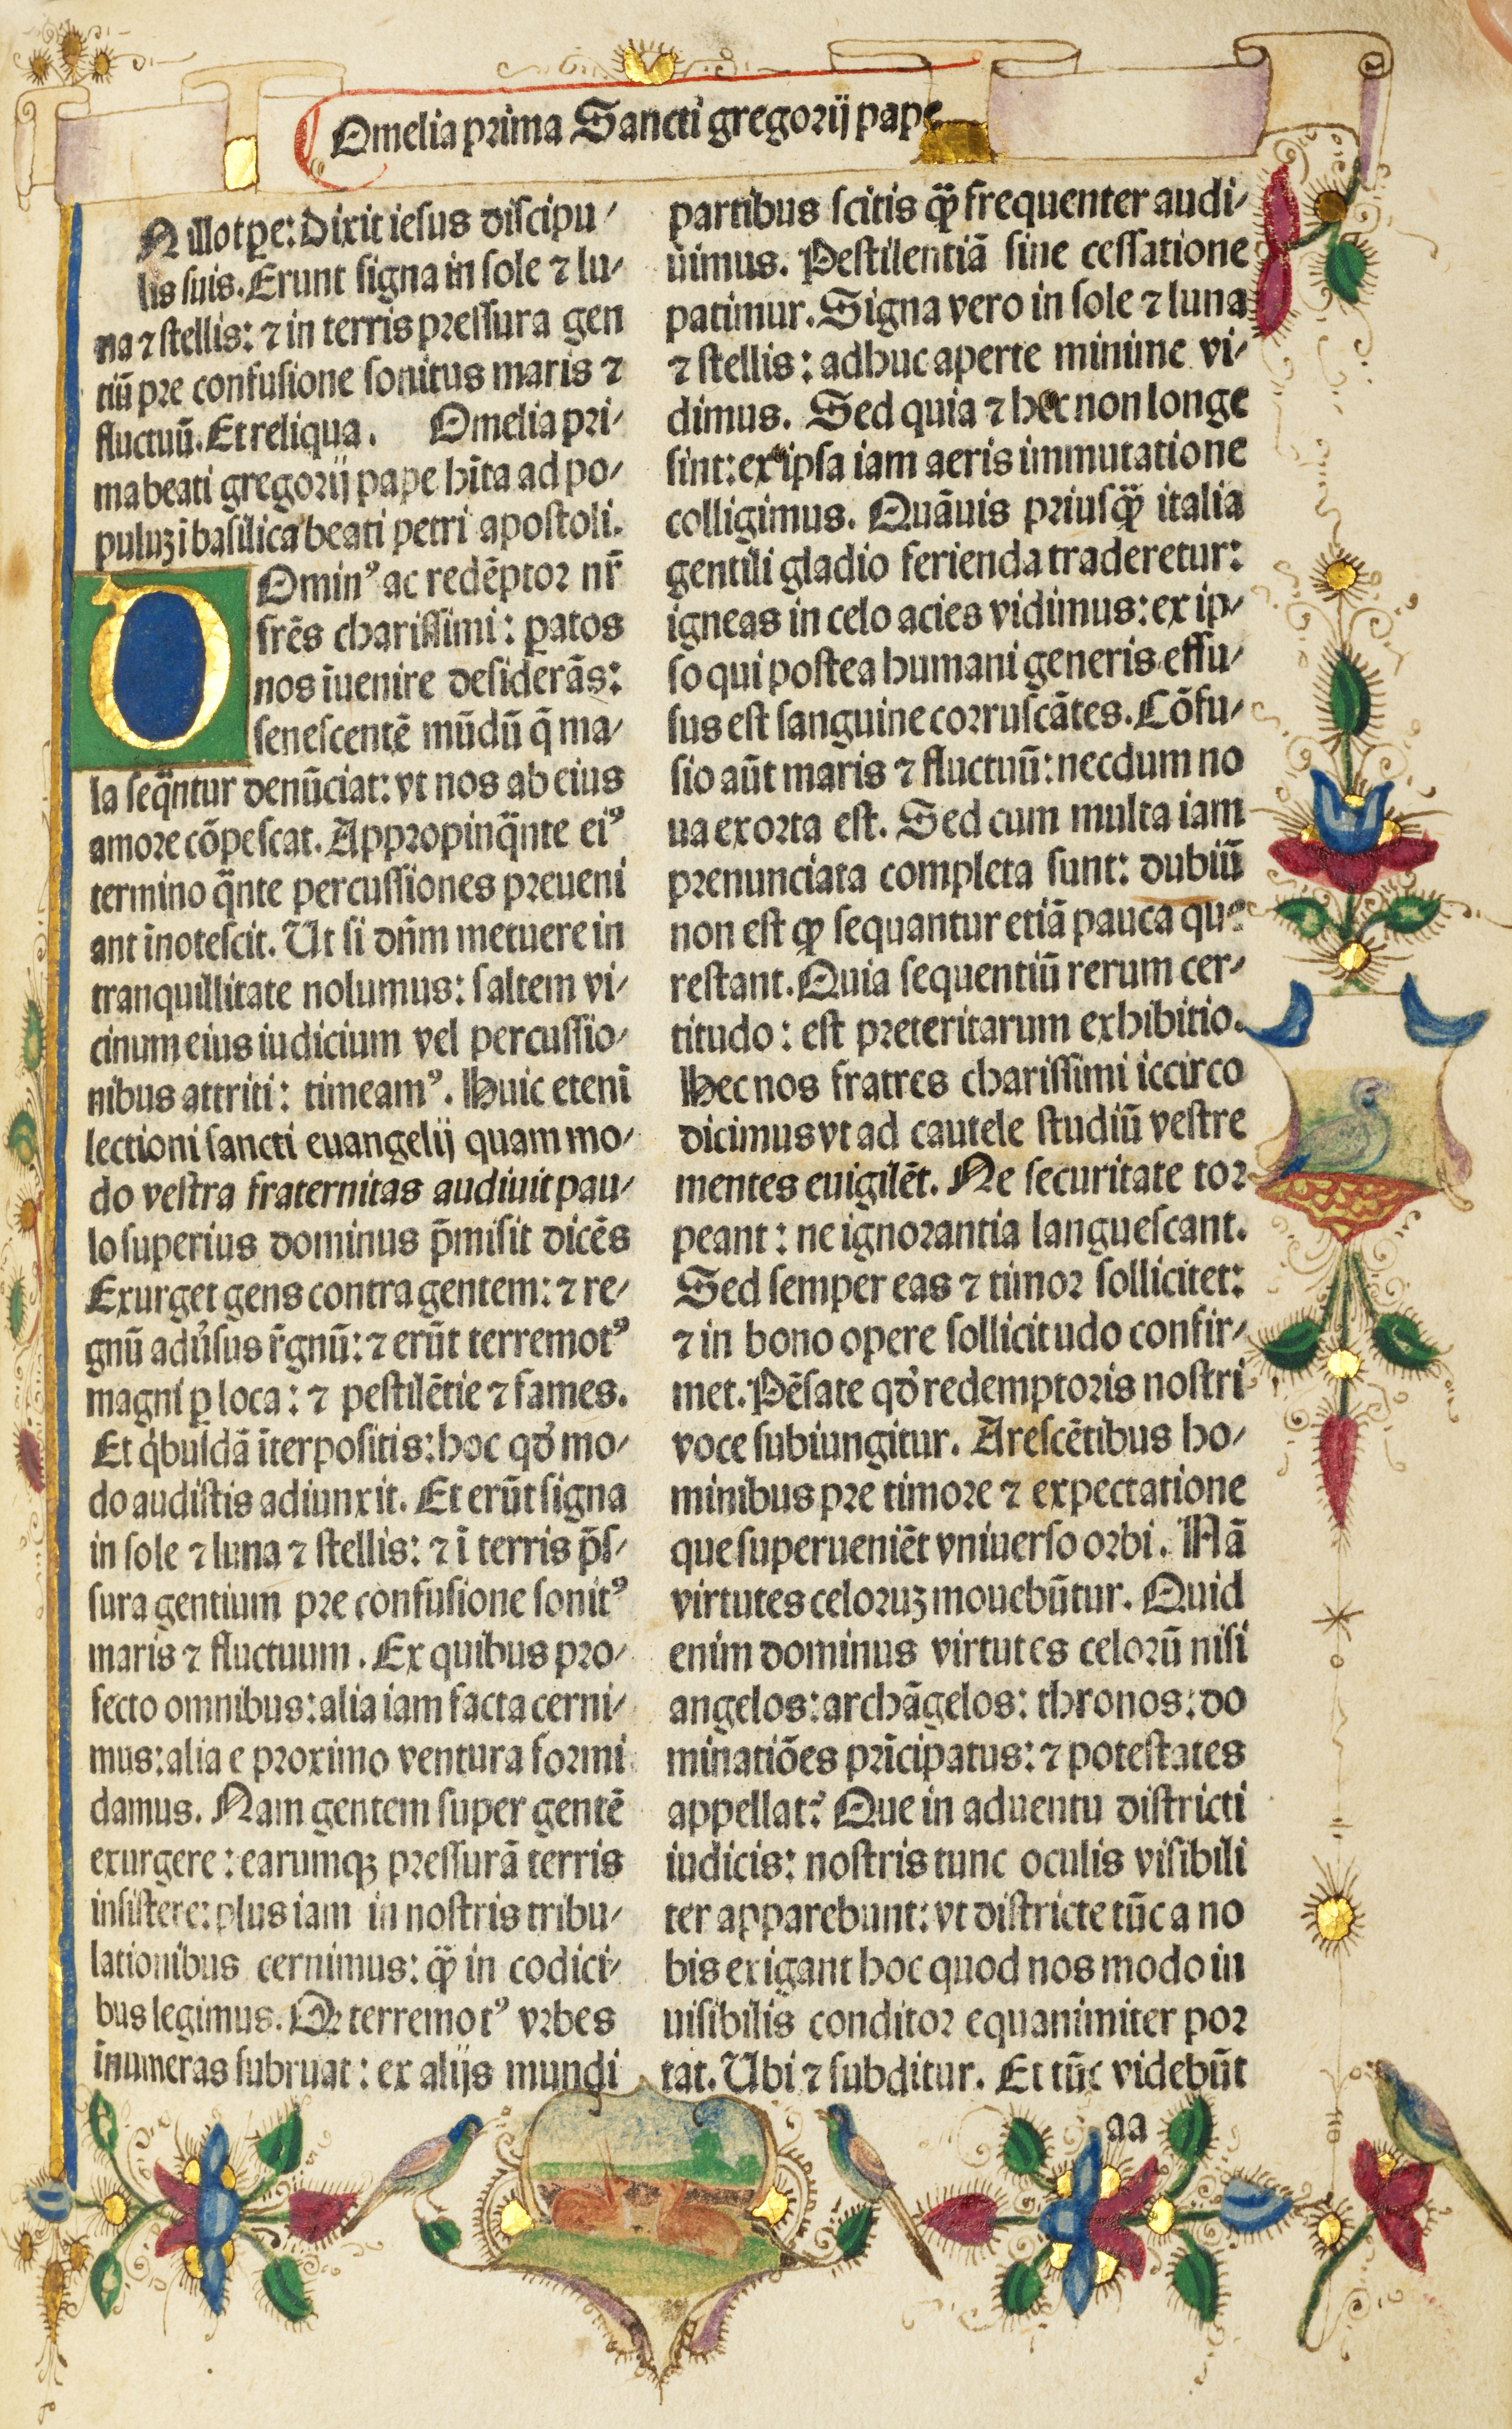 Omelia prima Sancti gregorij pape
N illo tꝑe: Dixit iesus discipu⸗
lis suis. Erunt signa in sole ⁊ lu⸗
na ⁊ stellis: ⁊ in terris pressura gen
tiū pre confusione sonitus maris ⁊
fluctuū. Et reliqua. Omelia pri⸗
ma beati gregorij pape hīta ad po⸗
puluꝫ ī basilica beati petri apostoli.
Ominꝰ ac redēptor nr̄
frēs charissimi: ꝑatos
nos īuenire desiderās:
senescentē mūdū q̄ ma⸗
la seq̄ntur denūciat: vt nos ab eius
amore cōpescat. Appropinq̄nte eiꝰ
termino q̄nte percussiones preueni
ant īnotescit. Ut si dn̄m metuere in
tranquillitate nolumus: saltem vi⸗
cinum eius iudicium vel percussio⸗
nibus attriti: timeamꝰ. Huic etenī
lectioni sancti euangelij quam mo⸗
do vestra fraternitas audiuit pau⸗
lo superius dominus p̄misit dicēs
Exurget gens contra gentem: ⁊ re⸗
gnū adu̓sus r̄gnū: ⁊ erūt terremotꝰ
magni ꝑ loca: ⁊ pestilētie ⁊ fames.
Et qͥbusdā īterpositis: hoc qd̓ mo⸗
do audistis adiunxit. Et erūt signa
in sole ⁊ luna ⁊ stellis: ⁊ ī terris p̄s⸗
sura gentium pre confusione sonitꝰ
maris ⁊ fluctuum. Ex quibus pro⸗
fecto omnibus: alia iam facta cerni⸗
mus: alia e proximo ventura formi
damus. Nam gentem super gentē
exurgere: earumqꝫ pressurā terris
insistere: plus iam in nostris tribu⸗
lationibus cernimus: q̄ꝫ in codici⸗
bus legimus. Qꝛ terremotꝰ vrbes
īnumeras subruat: ex alijs mundi
partibus scitis q̄ꝫ frequenter audi⸗
uimus. Pestilentiā sine cessatione
patimur. Signa vero in sole ⁊ luna
⁊ stellis: adhuc aperte minime vi⸗
dimus. Sed quia ⁊ hec non longe
sint: ex ipsa iam aeris immutatione
colligimus. Quāuis priusq̄ꝫ italia
gentili gladio ferienda traderetur:
igneas in celo acies vidimus: ex ip⸗
so qui postea humani generis effu⸗
sus est sanguine corruscātes. Cōfu⸗
sio aūt maris ⁊ fluctuū: necdum no
ua exorta est. Sed cum multa iam
prenunciata completa sunt: dubiū
non est qꝫ sequantur etiā pauca que
restant. Quia sequentiū rerum cer⸗
titudo: est preteritarum exhibitio.
Hec nos fratres charissimi iccirco
dicimus vt ad cautele studiū vestre
mentes euigilēt. Ne securitate tor
peant: ne ignorantia languescant.
Sed semper eas ⁊ timor sollicitet:
⁊ in bono opere sollicitudo confir⸗
met. Pēsate qd̓ redemptoris nostri
voce subiungitur. Arescētibus ho⸗
minibus pre timore ⁊ expectatione
que superueniēt vniuerso orbi. Nā
virtutes celoruꝫ mouebūtur. Quid
enim dominus virtutes celorū nisi
angelos: archāgelos: thronos: do
minatiōes prīcipatus: ⁊ potestates
appellat? Que in aduentu districti
iudicis: nostris tunc oculis visibili
ter apparebunt: vt districte tūc a no
bis exigant hoc quod nos modo in
uisibilis conditor equanimiter por
tat. Ubi ⁊ subditur. Et tūc videbūt
aa